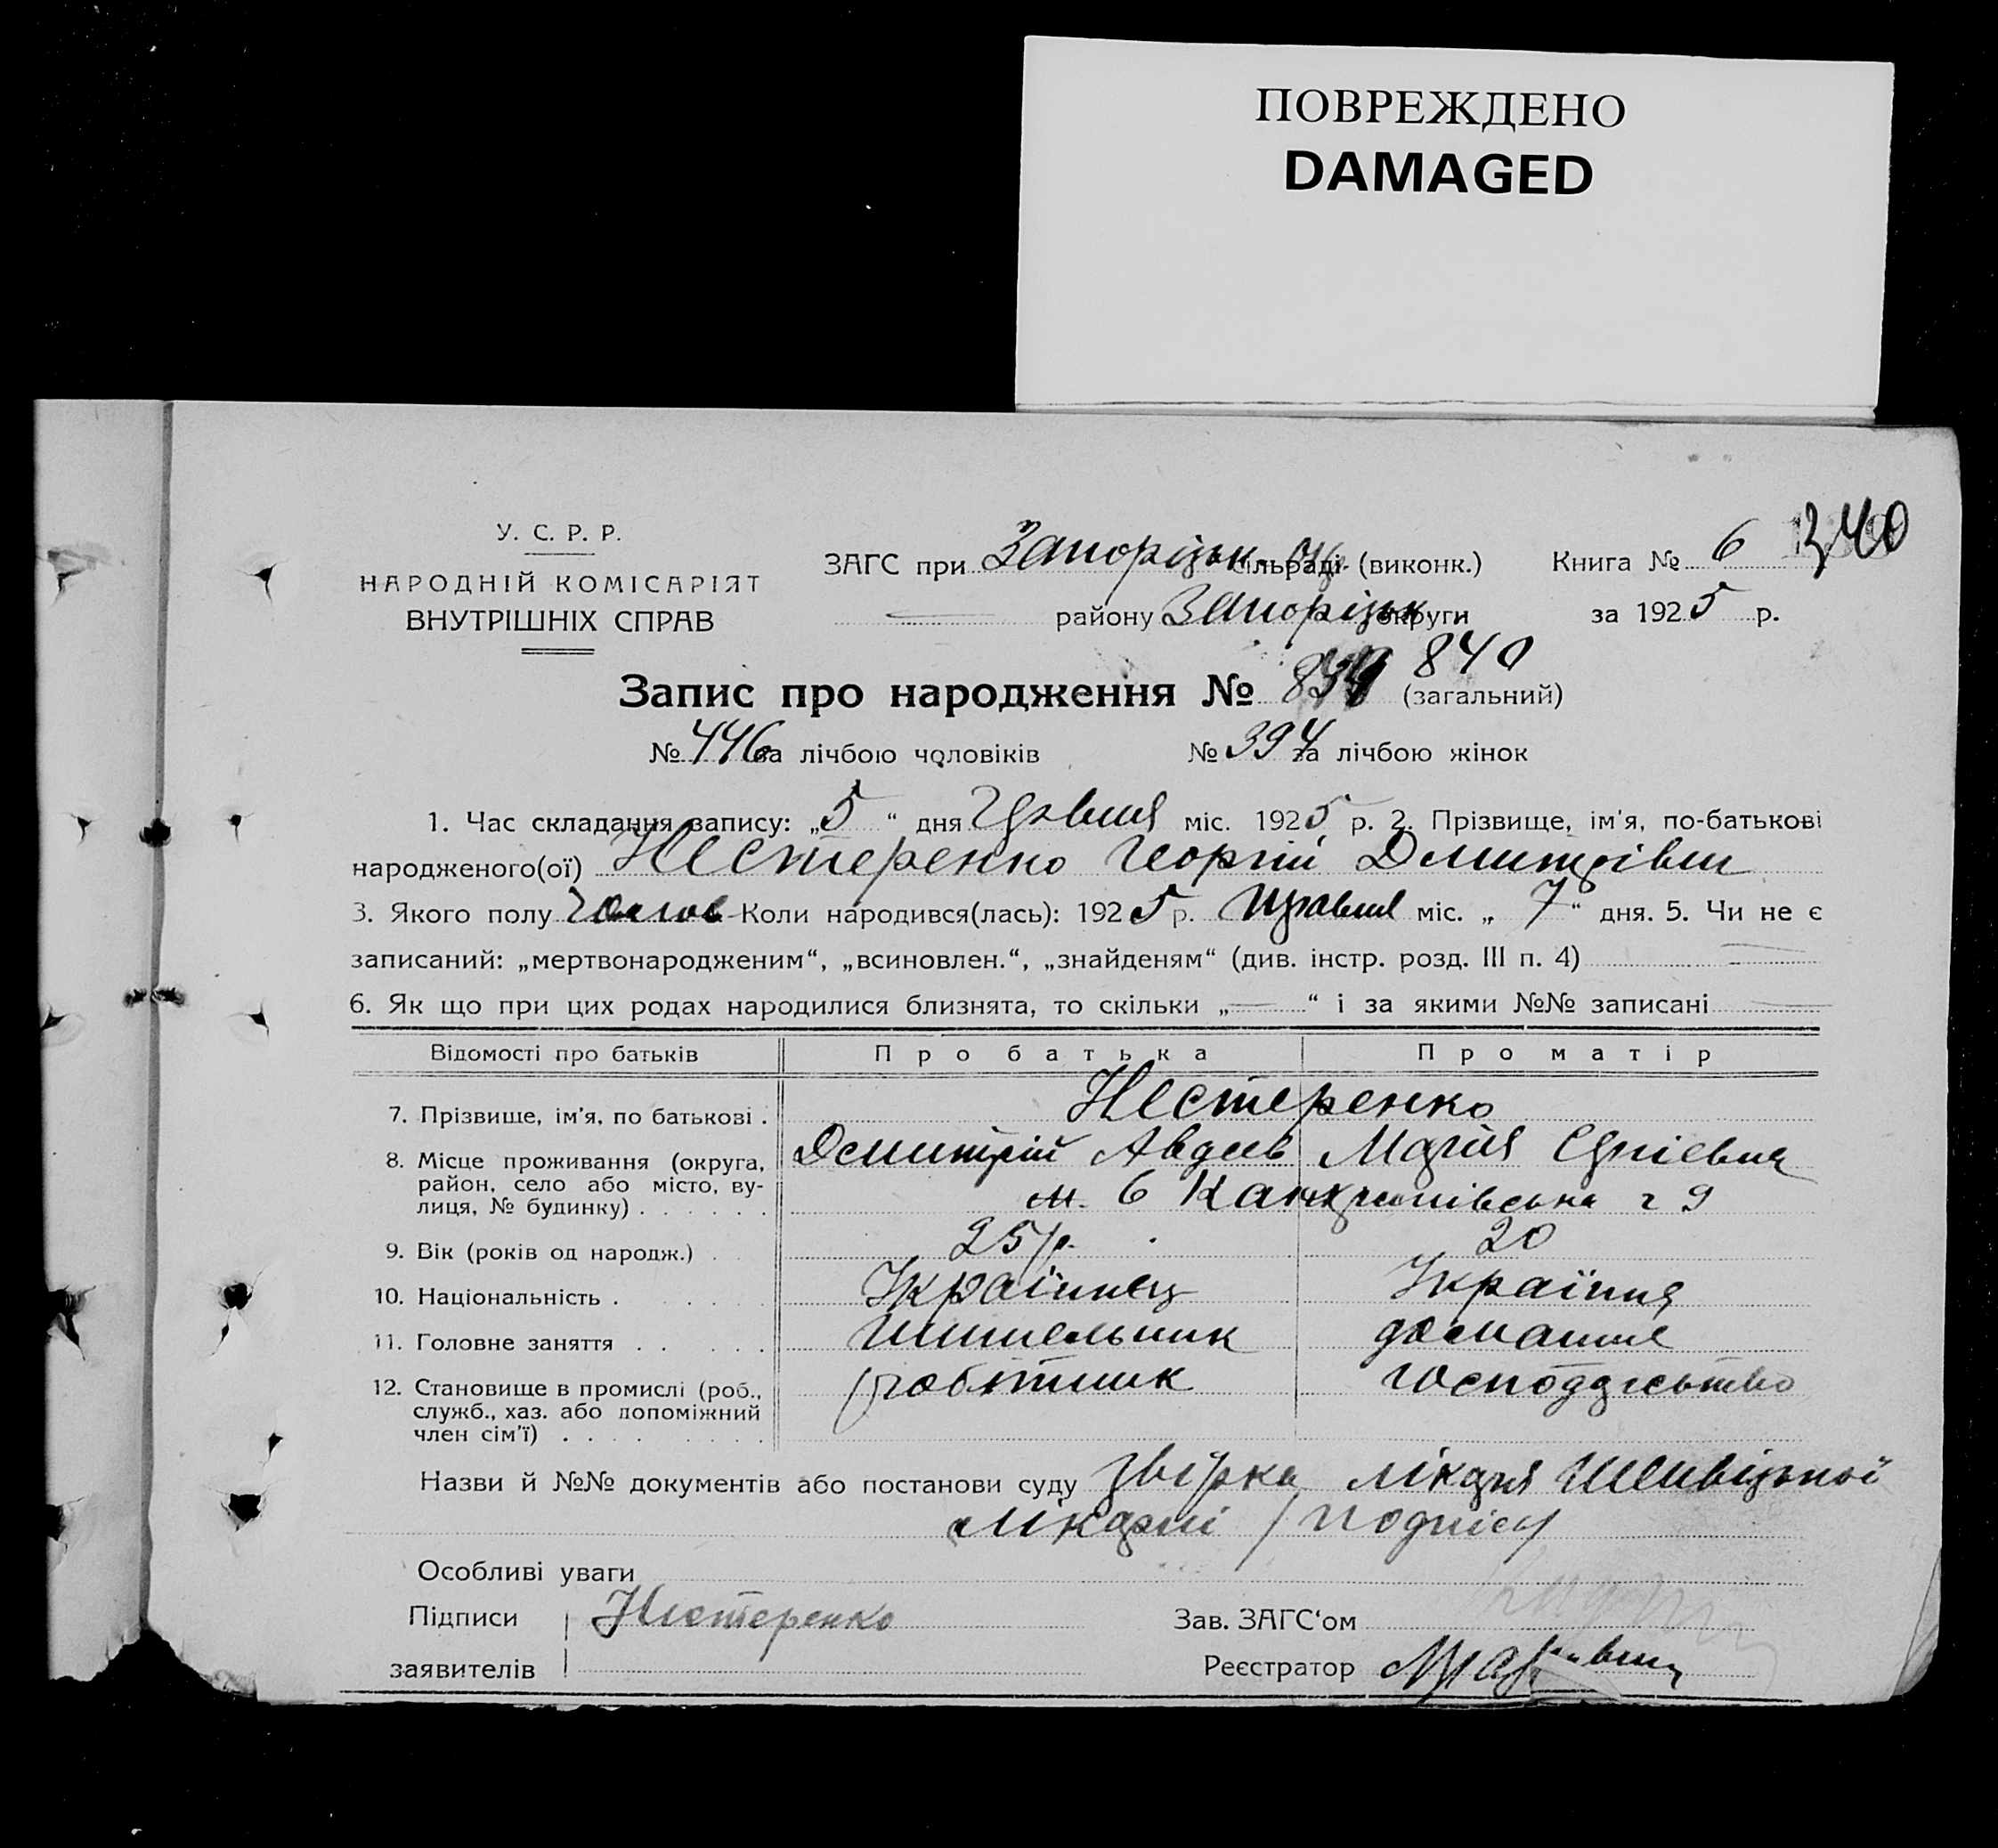 ПОВРЕЖДЕНО
DAMAGED
340
У. С. Р. Р.
НАРОДНІЙ КОМІСАРІЯТ
ВНУТРІШНІХ СПРАВ
ЗАГС при Запоріцьк. сільраді (виконк.) Книга № 6
району Запоріцьк округи за 1925 р.
840
Запис про народження № 839 (загальний)
№ 446 за лічбою чоловіків № 394 за лічбою жінок
1. Час складання запису: „5“ дня міс. 1925 р. 2. Прізвище, ім'я, по-батькові
народженого(ої) Нестеренко Георгій Дмитрівич
3. Якого полу Чолов Коли народився(лась): 1925 р. травня міс. „7“ дня. 5. Чи не є
записаний: „мертвонародженим“, „всиновлен.“, „знайденям“ (див. інстр. розд. III п. 4)
6. Як що при цих родах народилися близнята, то скільки „ “ і за якими №№ записані
Відомості про батьків Про батька Про матір
7. Прізвище, ім'я, по батькові . Нестеренко
8. Місце проживання (округа, район, село або місто, вулиця, № будинку) . . . . . . Дмитрій Авдеев Марія
9
9. Вік (років од народж.) . 25 р. 20
10. Національність . Українець Україння
11. Головне заняття . . домашнє
12. Становище в промислі (роб., служб., хаз. або допоміжний член сім'ї) . робітник господарство
Назви й №№ документів або постанови суду лікаря
лікарні
Особливі уваги
Підписи Нестеренко Зав. ЗАГС'ом
заявителів Реєстратор